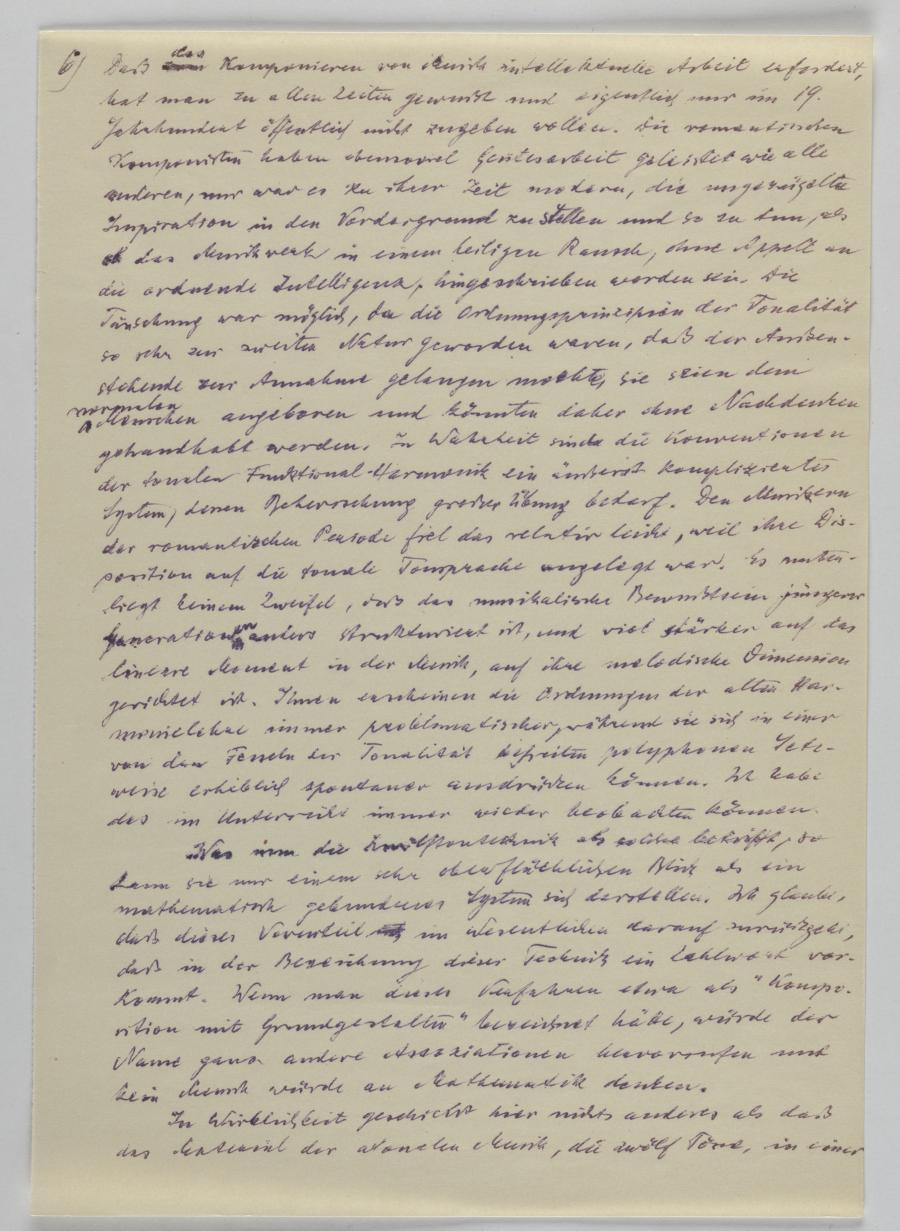 6) Daß das Komponieren von Musik intellektuelle Arbeit erfordert,
hat man zu allen Zeiten gewußt und eigentlich nur im 19.
Jahrhundert öffentlich nicht zugeben wollen. Die romantischen
Komponisten haben ebensoviel Geistesarbeit geleistet wie alle
anderen, nur war es zu ihrer Zeit modern, die ungezügelte
Inspiration in den Vordergrund zu stellen und so zu tun, als
ob das Musikwerk in einem heiligen Rausch, ohne Appell an
die ordnende Intelligenz, hingeschrieben worden sei. Die
Täuschung war möglich, da die Ordnungsprinzipien der Tonalität
so sehr zur zweiten Natur geworden waren, daß der Außen-
stehende zur Annahme gelangen mochte, sie seien dem
normalen
Menschen angeboren und könnten daher ohne Nachdenken
gehandhabt werden. In Wahrheit sind die Konventionen
der tonalen Funktional-Harmonik ein äußerst kompliziertes
System, dessen Beherrschung großer Übung bedarf. Den Musikern
der romantischen Periode fiel das relativ leicht, weil ihre Dis-
position auf die tonale Tonsprache angelegt war. Es unter-
liegt keinem Zweifel, daß das musikalische Bewußtsein jüngerer
Generationen anders strukturiert ist, und viel stärker auf das
lineare Moment in der Musik, auf ihre melodische Dimension
gerichtet ist. Ihnen erscheinen die Ordnungen der alten Har-
monielehre immer problematischer, während sie sich in einer
von den Fesseln der Tonalität befreiten polyphonen Setz-
weise erheblich spontaner ausdrücken können. Ich habe
das im Unterricht immer wieder beobachten können.
Was nun die Zwölftontechnik als solche betrifft, so
kann sie nur einem sehr oberflächlichen Blick als ein
mathematisch gebundenes System sich darstellen. Ich glaube,
daß dieses Vorurteil im Wesentlichen darauf zurückgeht,
daß in der Bezeichnung dieser Technik ein Zahlwort vor-
kommt. Wenn man dieses Verfahren etwa als "Kompo-
sition mit Grundgestalten" bezeichnet hätte, würde der
Name ganz andere Assoziationen hervorrufen und
kein Mensch würde an Mathematik denken.
In Wirklichkeit geschieht hier nichts anderes als daß
das Material der atonalen Musik, die zwölf Töne, in einer